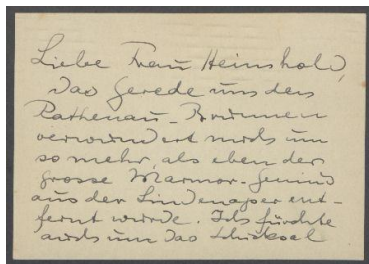 Liebe Frau Heinshold,
das Gerede um den
Rathenau-Brunnen
verwundert mich um
so mehr, als eben der
grosse Marmor-Genius
aus der Lindenoper ent-
fernt wurde. Ich fürchte
auch um das Schicksal